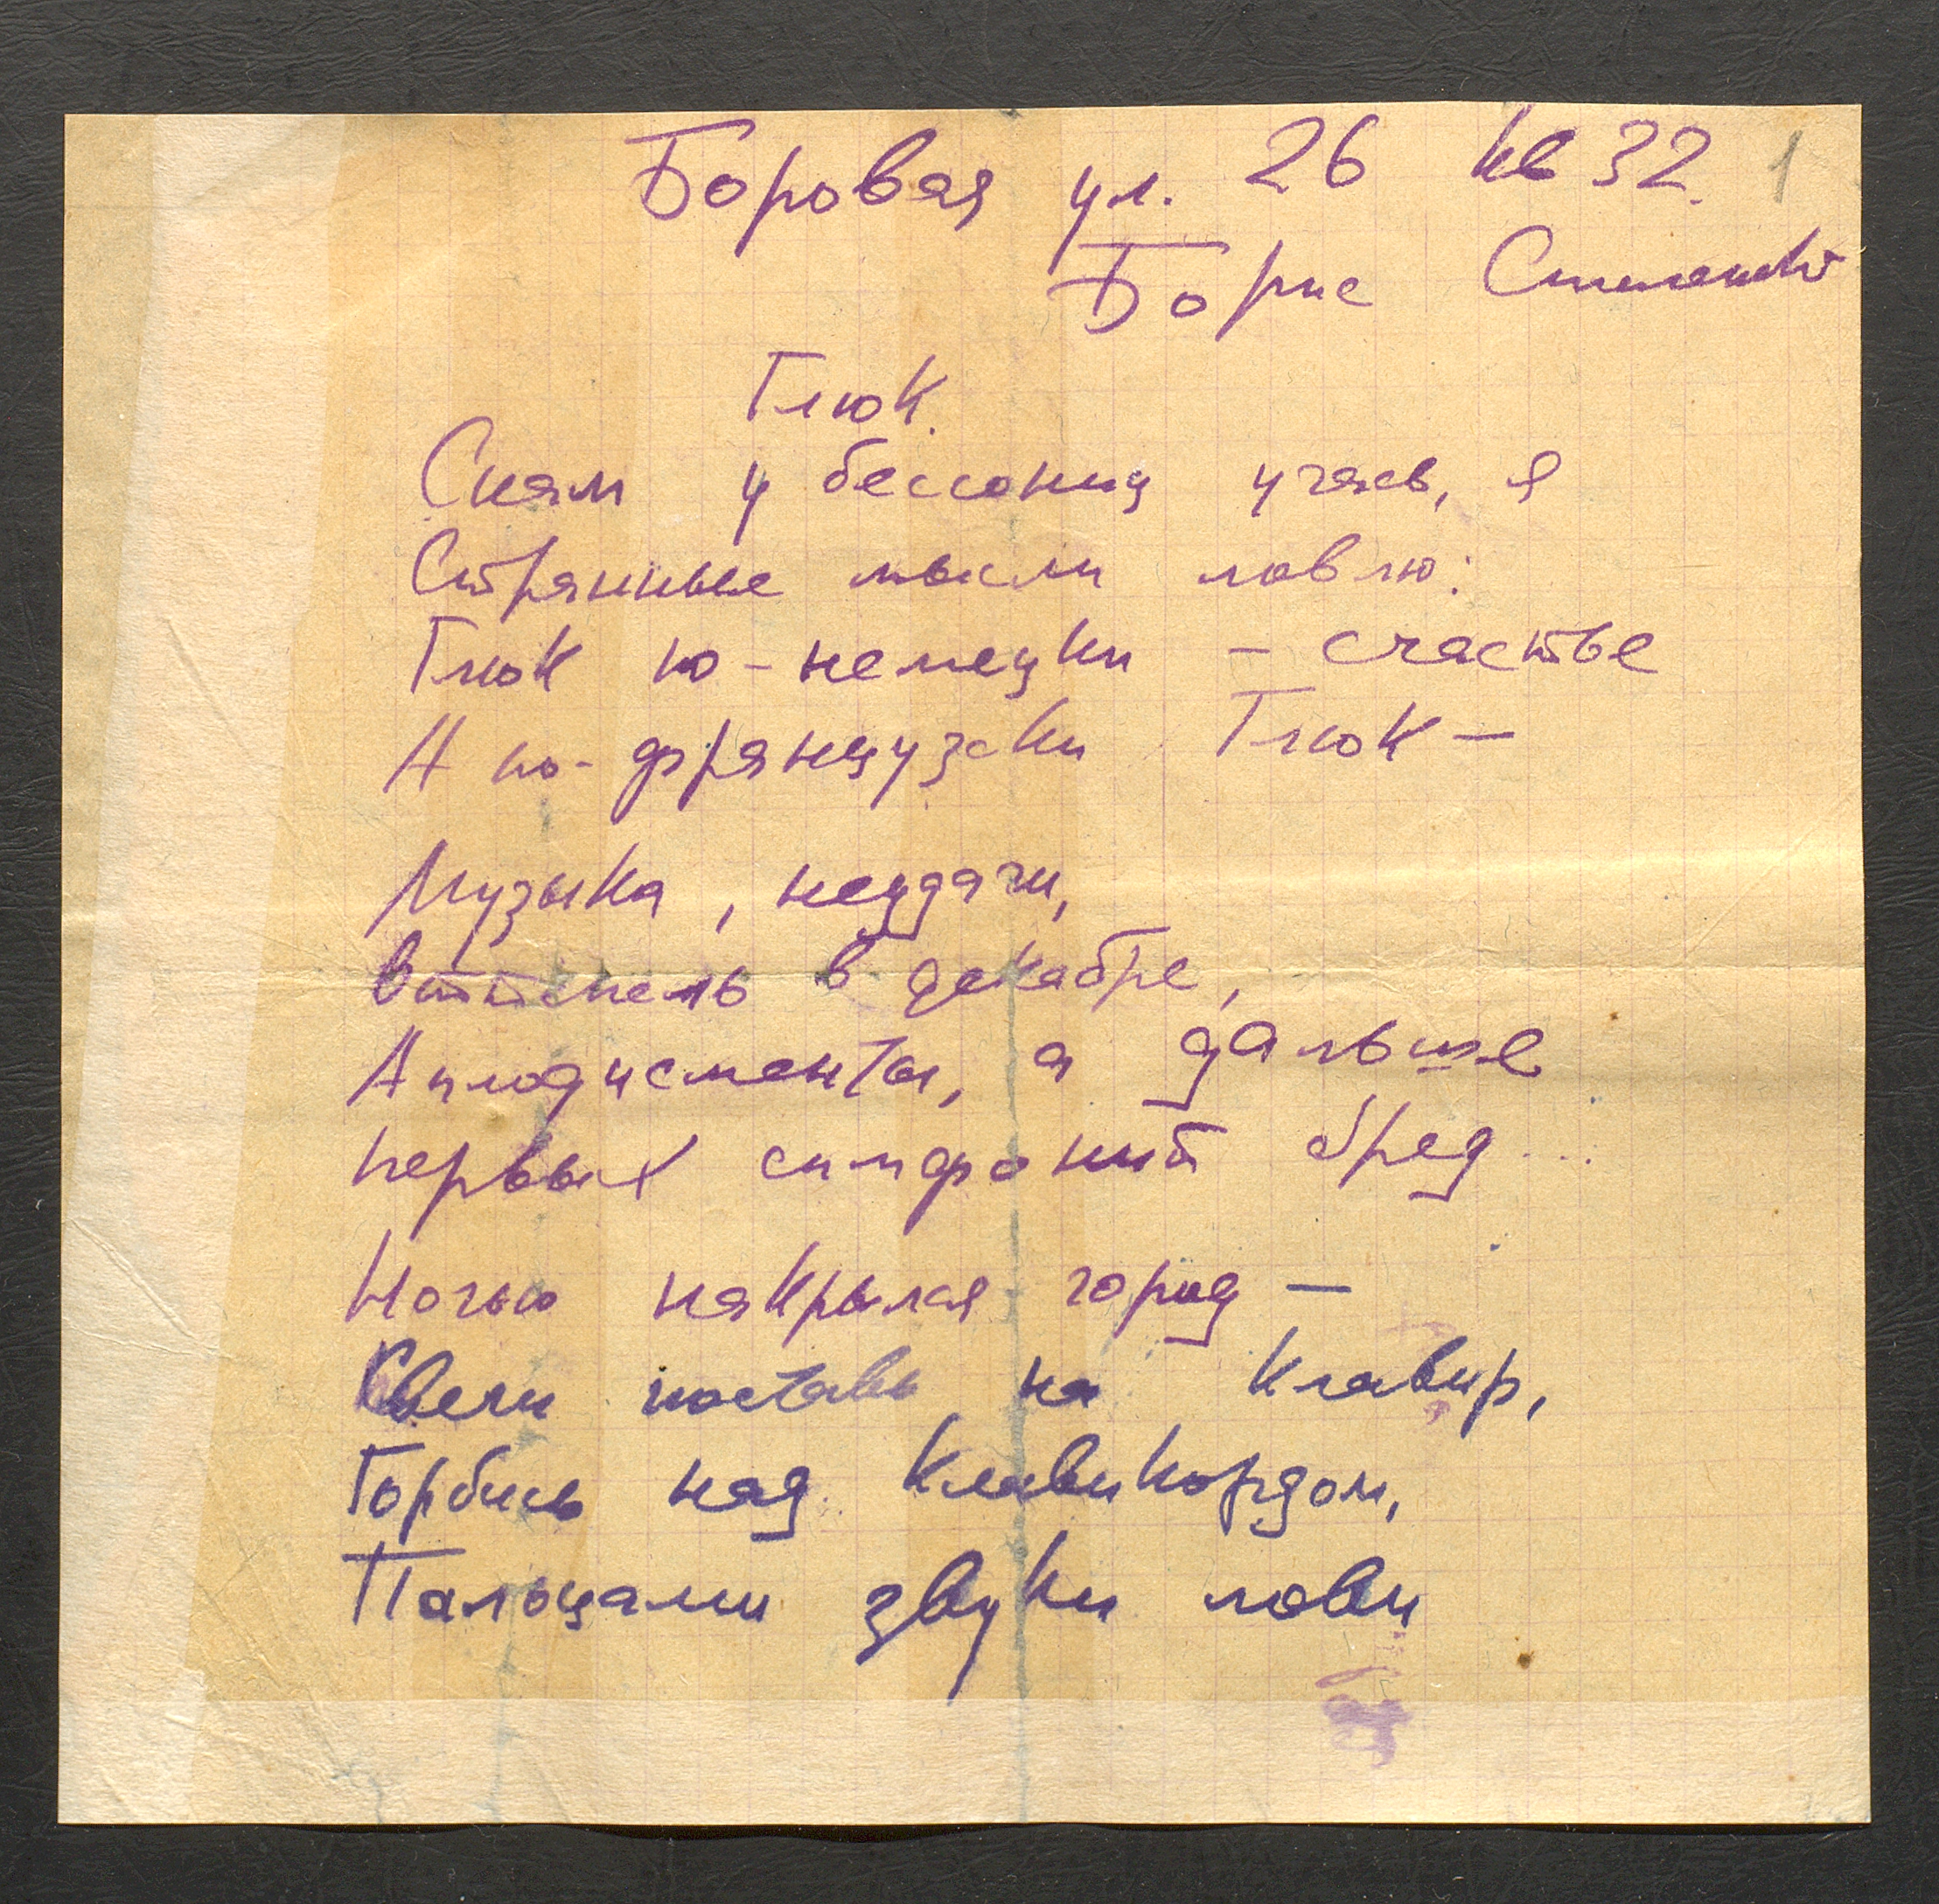 Боровая ул. 26 кв 32. 1
Борис
Глюк.
Снам у бессониц учась, я
Странные мысли ловлю:
Глюк по-немецки - счастье
А по-французски Глюк -
Музыка, неудачи,
Оттепель в декабре,
Аплодисменты, а дальше
первых симфоний бред...
Ночью накрылся город -
Свечи поставь на клавир,
Горбись над клавикордом,
Пальцами звуки лови